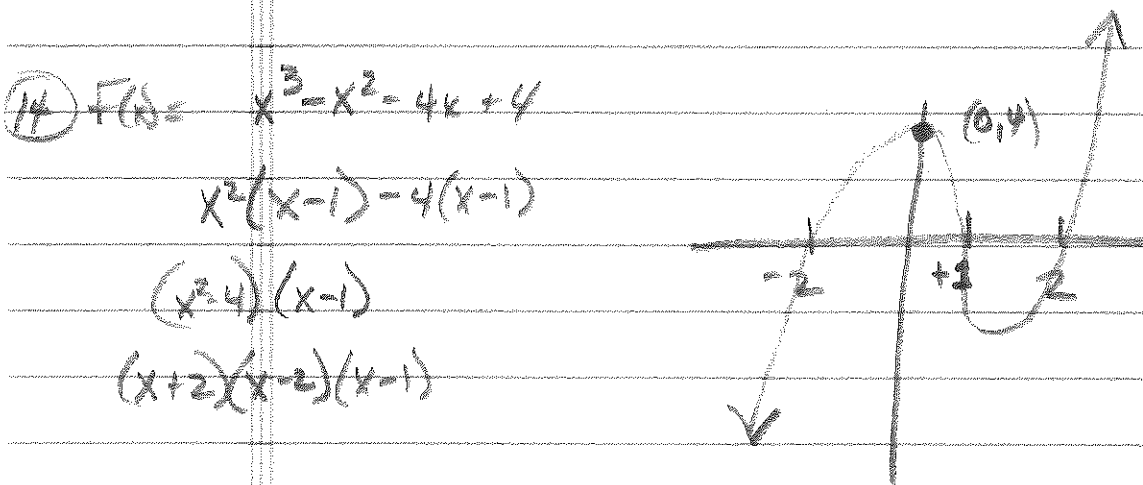 14 F(x)= x³-x²-4x+4
x²(x-1)-4(x-1)
(x²-4)(x-1)
(x+2)(x-2)(x-1)
(0,4)
-2 +1 2